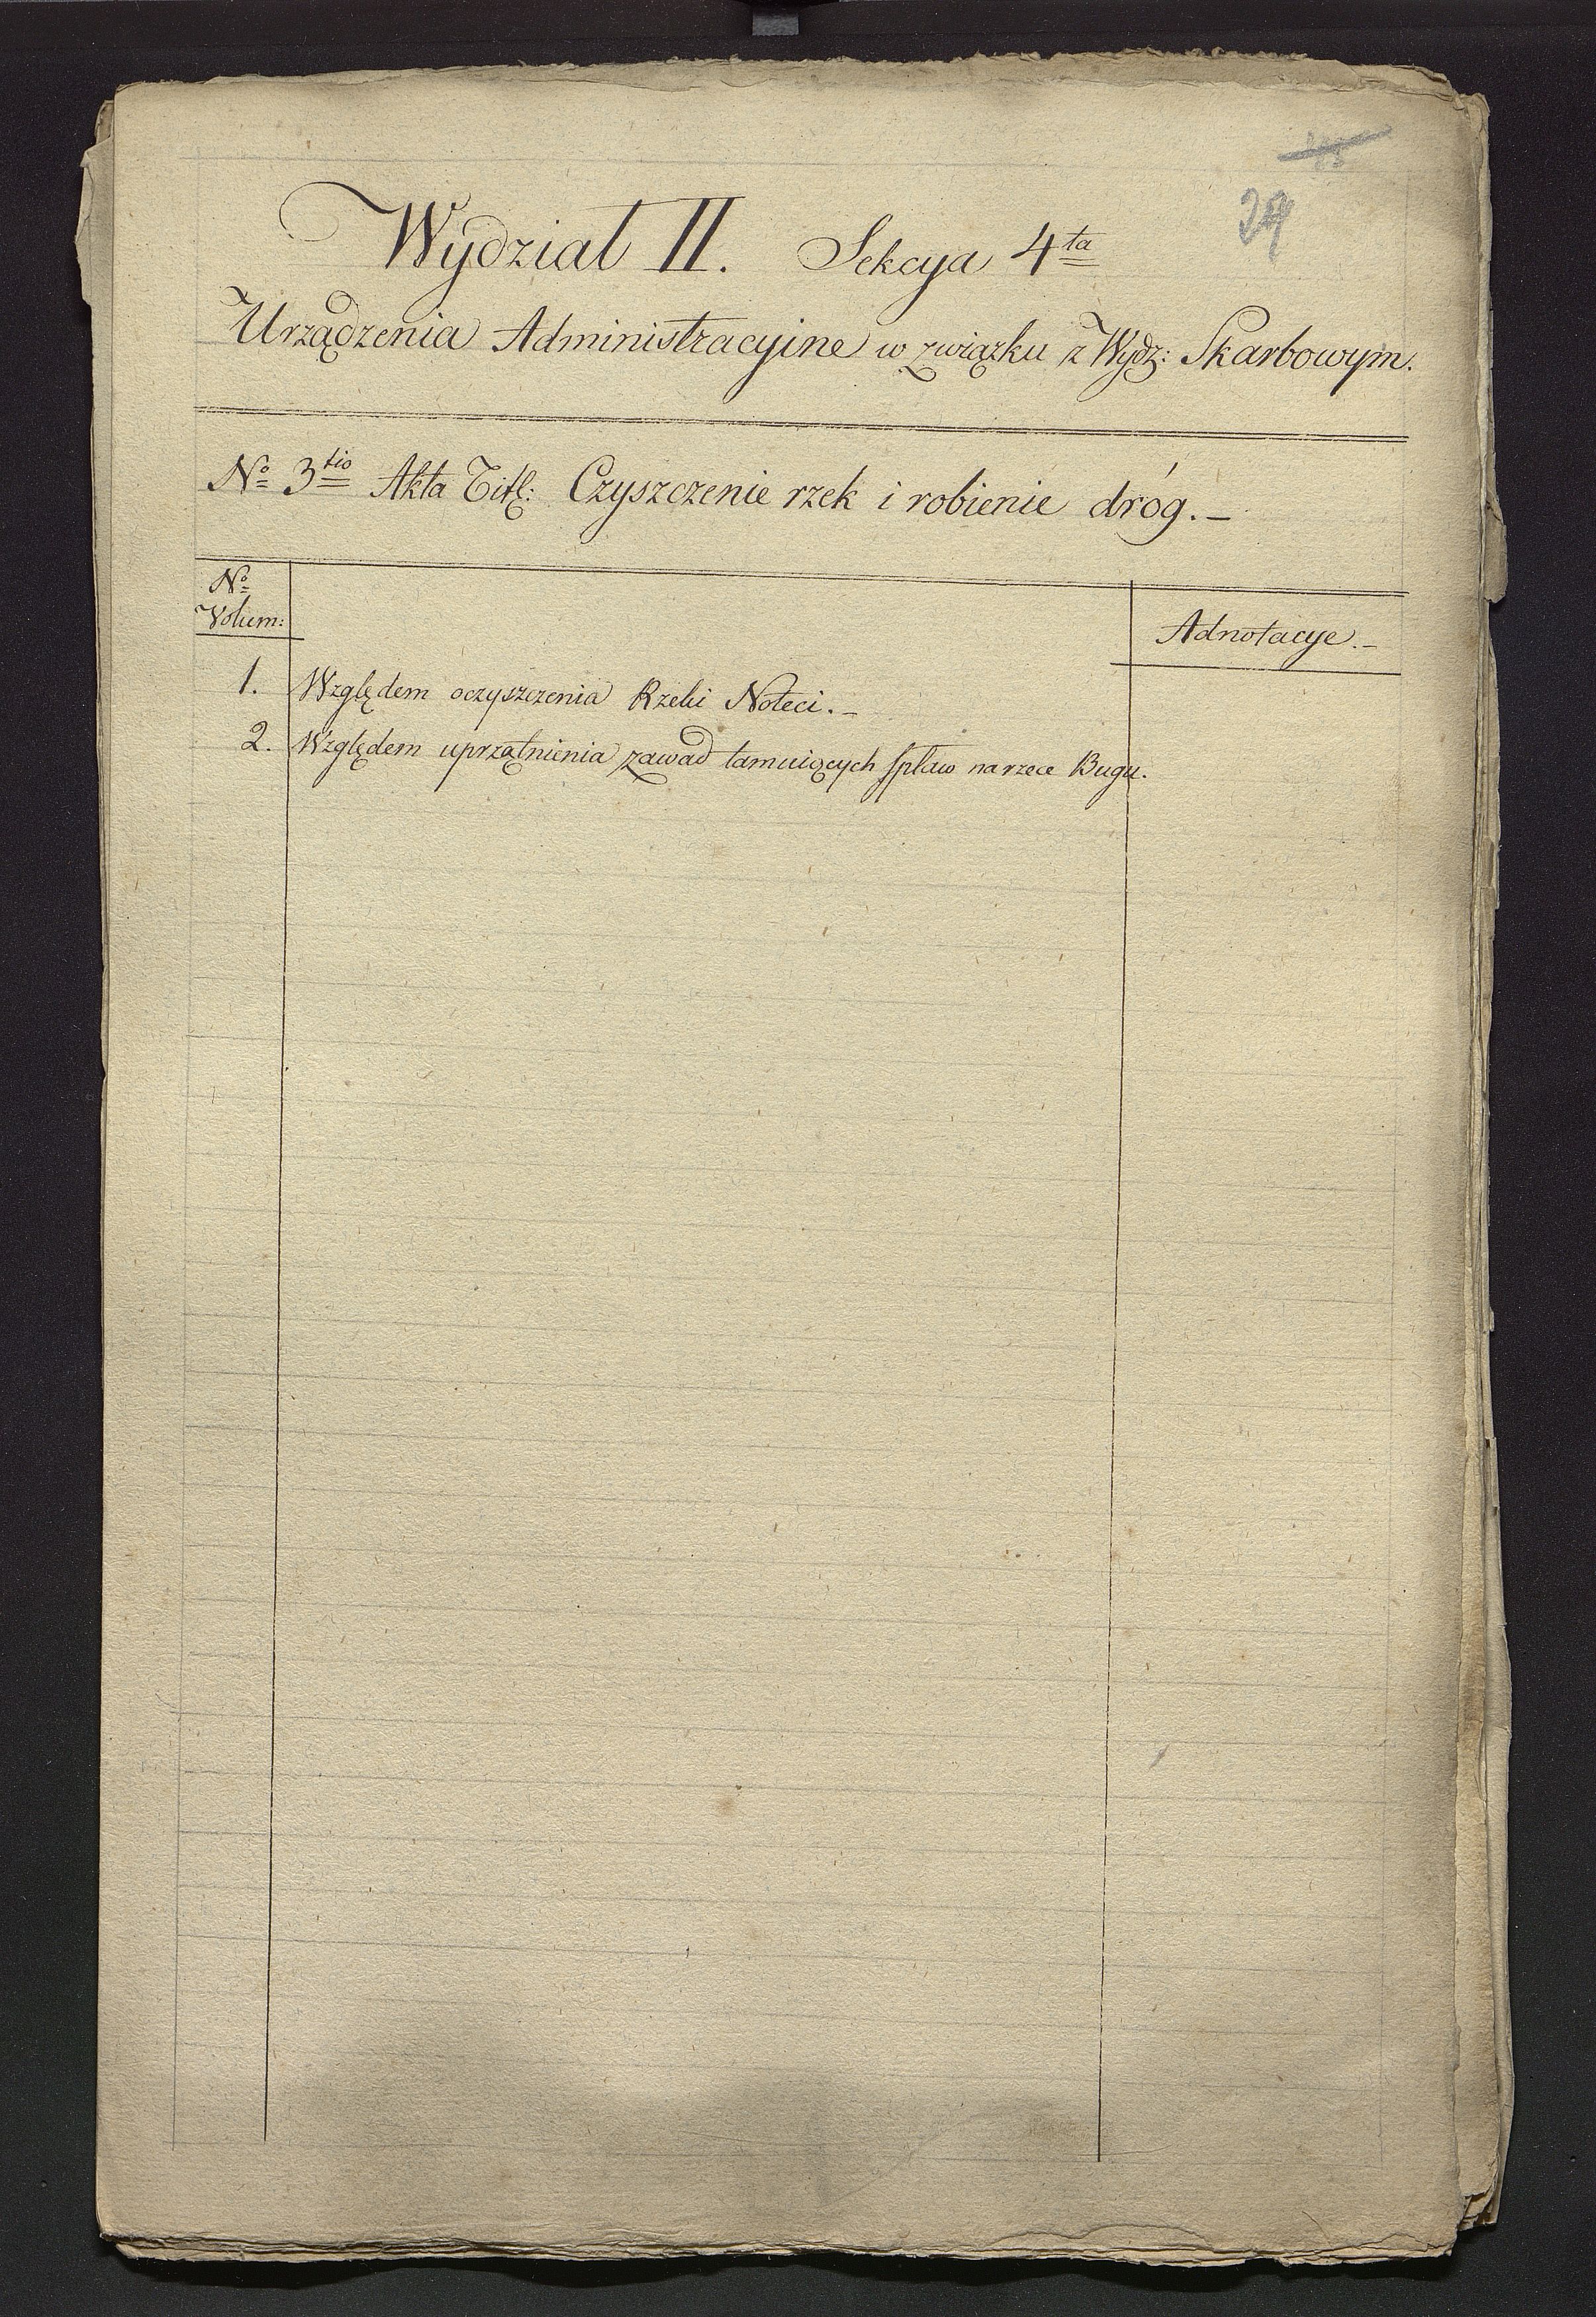 29
Wydział II. Sekcya 4ta
Urządzenia Administracyine w związku z Wydz: Skarbowym.
No 3tio Akta Titl: Czyszczenie rzek i robienie dróg.–
No
Volum:
Adnotacye.–
1. Względem oczyszczenia Rzeki Noteci.–
2. Względem uprzątnienia zawad tamuiących spław na rzece Bugu.